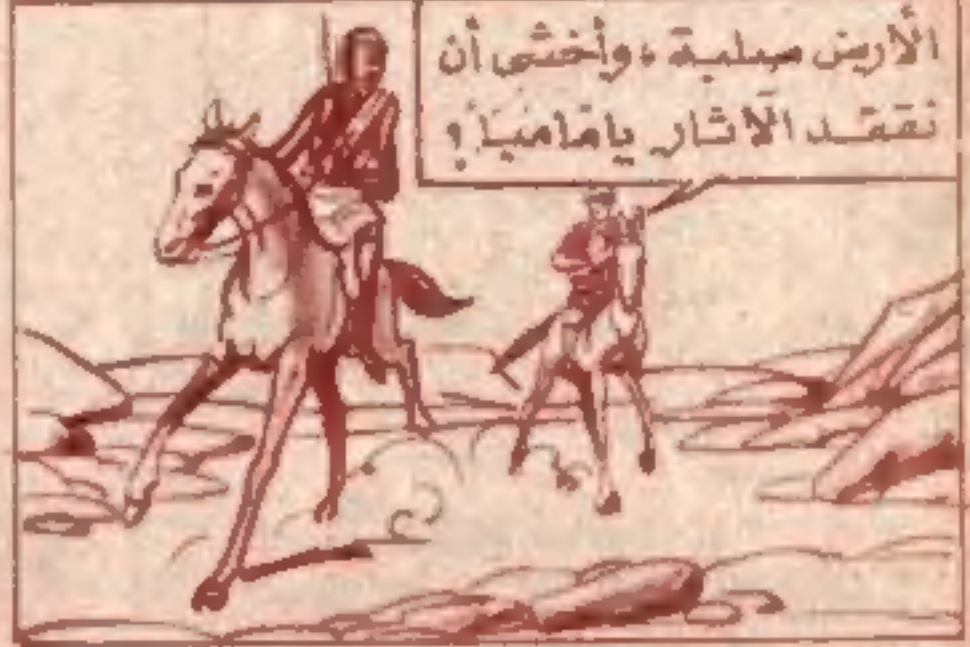 الأرض صلبة، وأخشى أن
نفقد الآثار يا مامبا !